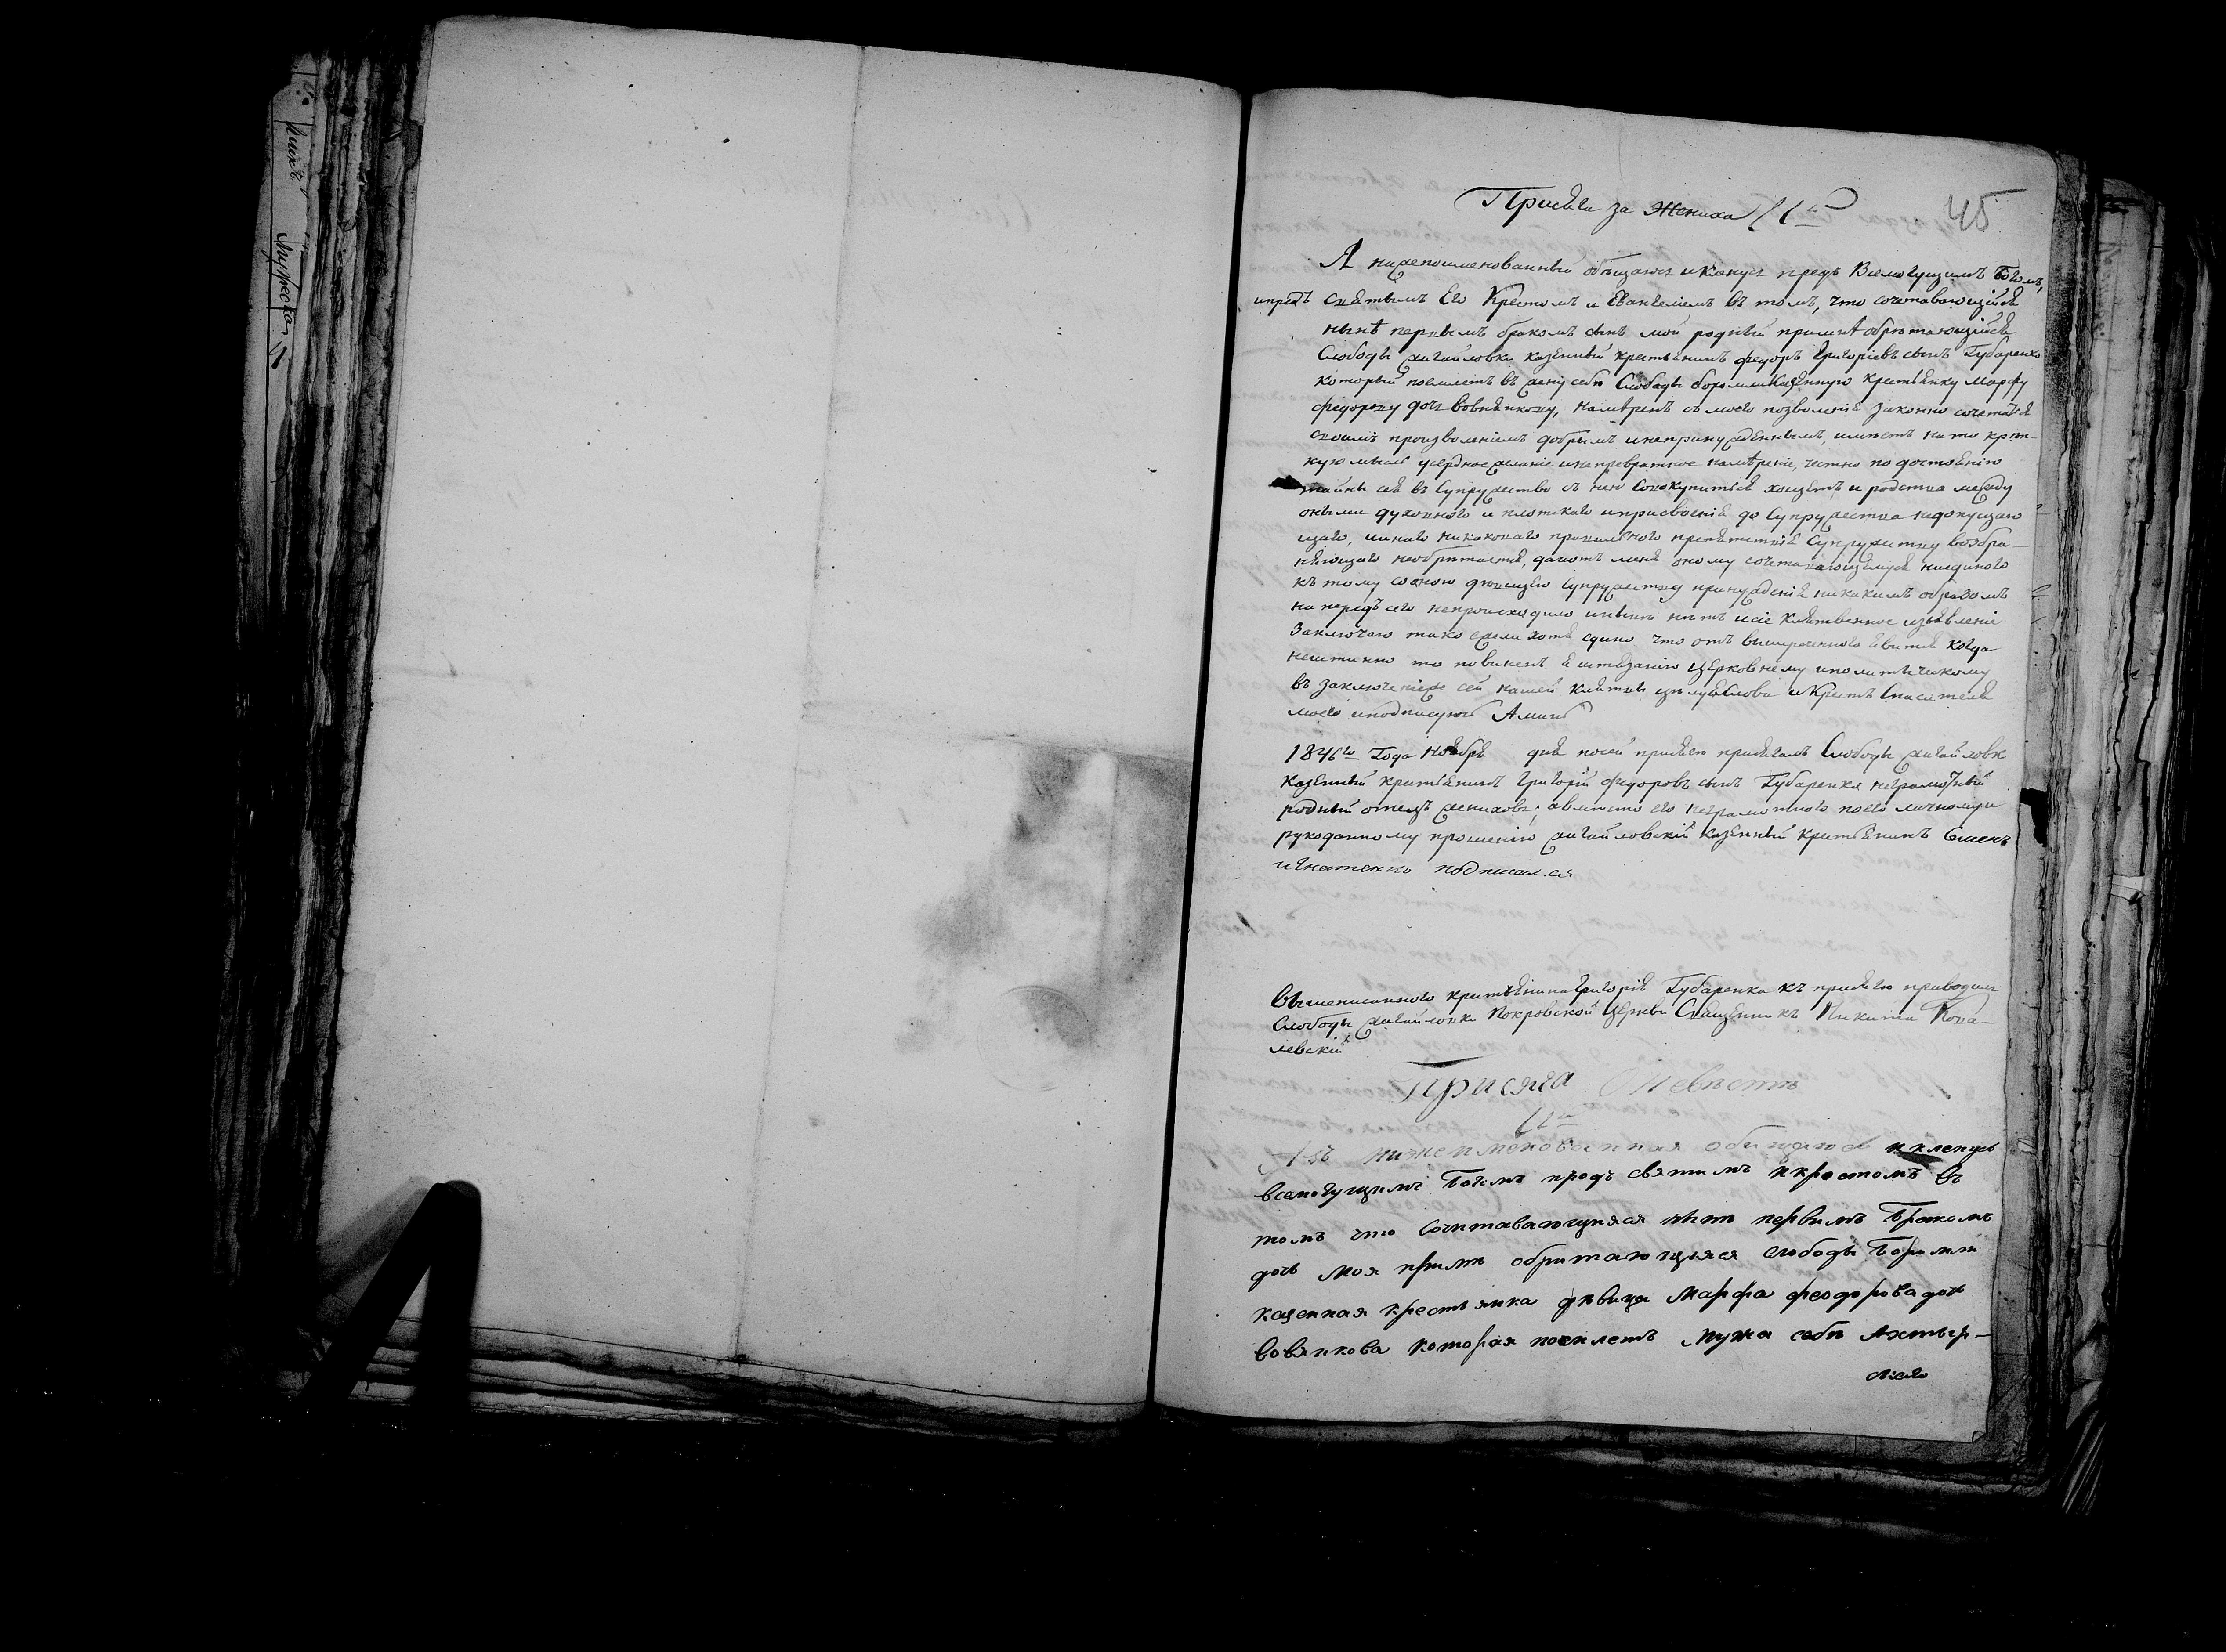 45
Присяга за Жениха
Я нижепоименованный обѣщаюсь и клянусь предъ Всемогущимъ Богомъ,
и предъ Святымъ Его Крестомъ и Евангелиемъ въ томъ, что сочетавающійся
нынѣ первымъ бракомъ сынъ мой родный приметь обрѣтающійся
Слободы Жигайловки казенный крестьянинъ Федоръ Григоріевъ сынъ Губаренко
который поемлетъ въ жену себѣ Слободы Боромли Казенную Крестьянку Марфу
Федорову дочь Вовнянкову, намѣренъ съ моего позволенія законно сочетатся
своимъ произволеніемъ добрымъ и непринужденнымъ, имѣетъ на то крѣп-
кую мысль усердное желаніе и непревратное намѣреніе, честно по достоянію
тайны сея въ Супружество съ нею Совокупиться хощетъ и родства между
оными духовного и плотскаго и присвоенія до Супружества недопущаю
щаго, инаго никаковаго правильного препятствія Супружеству возбра-
няющаго необрѣтается, да и отъ меня оному сочетавающемуся ниединого
къ тому со оною дѣвицею Супружеству принужденія никакимъ образомъ
напередъ сего непроисходило и нынѣ нѣтъ и сіе клятвенное изъявленіе
Заключаю тако ежели хотя едино что отъ вышереченного явится когда
неистинно то повиненъ я истязанію Церковному и политическому
въ заключеніеже сей нашей клятвы цѣлую Слова и Крестъ Спасителя
моего и подписуюсь Аминь
1846го Года Ноября дня по сей присягѣ присягалъ Слободы Жигайловк
Казенный Крестьянинъ Григорій Федоровъ сынъ Губаренко неграмотный
родный отецъ жениховъ, а вместо его неграмотного по его личному и
рукоданному прошенію жигайловскій казенный крестьянинъ Семенъ
Игнатенко подписался
Вышеписанного крестьянина Григорія Губаренка къ присягѣ приводилъ
Слободы Жигайловки Покровской Церкви Священникъ Никита Кова-
левскій
Присяга О невѣстѣ
Азъ нижепменованная обищаюся и кленусь
всемогущимъ Богомъ предъ святимъ и крестомъ въ
томъ что Сочитавающияся нинѣ первимъ Бракомъ
дочь моя примѣ обритающияся слободы Боромли
казенная крестьянка дѣвица Марфа Феодорова доч
вовянкова которая поемлетъ мужа себѣ Ахтыр-